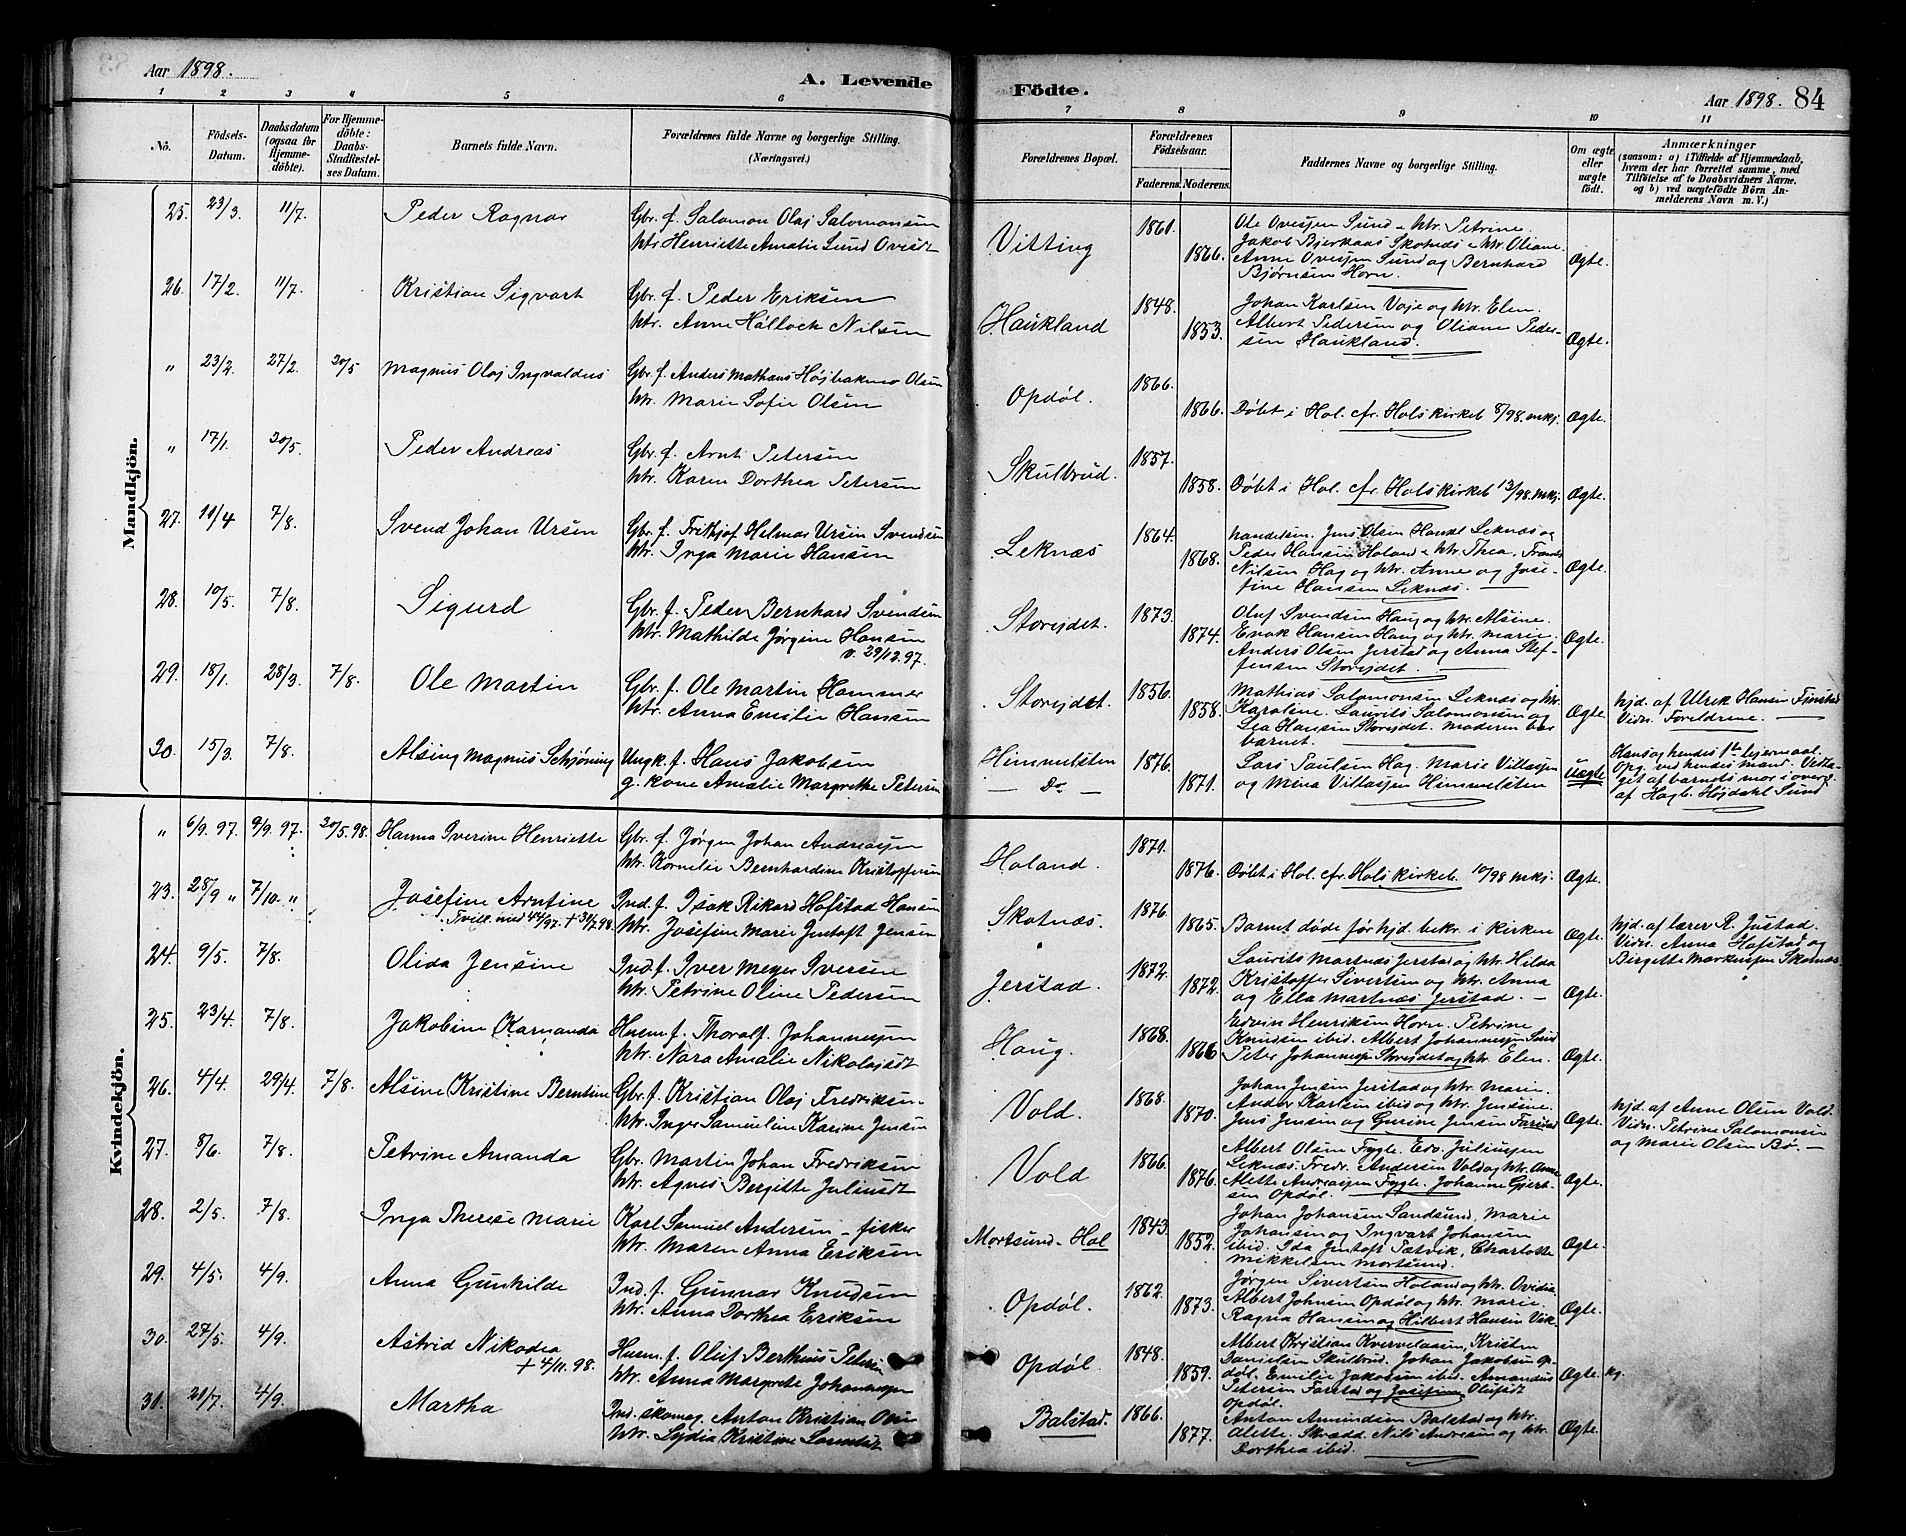 Aar 1898.
A. Levende
Födte.
Aar 1898. 84
1 2 3 4 5 6 7 8 9 10 11
No.
Födsels-Datum.
Daabsdatum (ogsaa for Hjemme-döbte).
For Hjemme-döbte: Daabs-Stadfæstel-ses Datum.
Barnets fulde Navn.
Forældrenes fulde Navne og borgerlige Stilling. (Næringsvei.)
Forældrenes Bopæl.
Forældrenes Födselsaar.
Faderens. Moderens.
Faddernes Navne og borgerlige Stilling.
Om ægte eller uægte födt.
Anmærkninger
(saasom: a) i Tilfælde af Hjemmedaab, hvem der har forrettet samme, med Tilföielse af to Daabsvidners Navne, og b) ved uægtefödte Börn An-melderens Navn m. V.)
Mandkjön.
25. 23/3. 11/7. Peder Ragnar Gbr. f. Salomon Olaj Salomonsen Vitting 1861. Ole Ovesen Sund o htr. Petrine
htr Henriette Amalie Sund Ovesdt 1866. Jakob Bjerkaas Skotnæs o htr. Oliane Ægte.
Anne Ovesen Sund og Bernhard
Bjørnsen Horn.
26. 17/2. 11/7. Kristian Sigvart Gbr. f. Peder Eriksen Haukland 1848. Johan Karlsen Voje og htr. Elen.
htr. Anne Hólloch Nilsen 1853. Albert Pedersen og Oliane Peder- Ægte.
sen Haukland.
" 23/2. 27/2. 20/5 Magnus Olaj Ingvaldus Gbr. f. Anders Mathæus Højbakmo Olsen Opdøl. 1866.
htr. Marie Sofie Olsen 1866. Døbt i Hol. cfr. Hols kirkeb 8/98. mkj. Ægte.
" 17/1. 20/5. Peder Andreas Gbr. f. Arnt Petersen Skulbrud. 1857.
htr. Karen Dorthea Petersen 1858. Døbt i Hol. cfr. Hols kirkeb 13/98. mkj. Ægte.
27. 11/4 7/8. Svend Johan Ursin Gbr. f. Frithjof Hilmar Ursin Svendsen Leknæs 1864. Handelsm. Jens Olsen Handl Leknæs og
htr. Inga Marie Hansen 1868. Peder Hansen Holand o htr. Thea, Ægte.
Nilsen Hag og htr. Anne og Jose-
fine Hansen Leknæs.
28. 10/5. 7/8. Sigurd Gbr. f. Peder Bernhard Svendsen Storejdet. 1873. Oluf Svendsen Haug og htr. Alsine.
htr. Mathilde Jørgine Hansen 1874. Evak Hansen Haug og htr. Marie. Ægte.
v. 29/12.97. Anders Olsen Jerstad og Anna Stef-
fensen Storejdet.
29. 18/1. 28/3. 7/8. Ole Martin Gbr. f. Ole Martin Hammer Storejdet. 1856. Mathias Salomonsen Leknæs og htr.
htr. Anna Emilie Hansen 1858. Karoline. Laurits Salomonsen og Ægte. hjd. af Ulrik Hansen Finstad
Lea Hansen Storejdet. Moderen bar Vidn. Foreldrene.
barnet.
30. 15/3 7/8. Alsing Magnus Schjøning Ungk. f. Hans Jakobsen Himmelsten 1876. Lars Paulsen Hag. Marie Villassen Uægte Hans og hendes 1te lejermaal.
g. kone Amalie Margrethe Petersen Do. 1871. og Mina Villassen Himmelsten Opg. ved hendes mand. Vedta-
get af barnets mor i overv.
af Hagb. Højdahl Sund
Kvindekjön.
" 6/9. 97. 9/9. 97. 20/5. 98. Hanna Iverine Henriette Gbr. f. Jørgen Johan Andreasen Holand. 1871.
htr. Kornelie Bernhardine Kristoffersen 1876. Døbt i Hol. cfr. Hols kirkeb. 10/98 mkj. Ægte.
23. 28/9 " 7/10. " Josefine Arntine Ind. f. Isak Rikard Hofstad Hansen Skotnæs. 1876.
Tvill. med 44/97. + 31/7 98. htr. Josefine Marie Gentoft Jensen 1865. Barnet døde før hjd. bekr. i kirken Ægte hjd. af lærer R. Justad.
Vidn. Anna Hofstad og
Birgitte Markussen Skotnæs.
24. 9/5. 7/8. Olida Jensine Ind. f. Iver Meyer Iversen Jerstad. 1872. Laurits Martnæs Jerstad og htr. Hilda
htr. Petrine Oline Pedersen 1872. Kristoffer Sivertsen og htr. Anna Ægte.
og Ella Martnæs Jerstad.
25. 23/4. 7/8. Jakobine Kamanda Husm. f. Thoralf Johannessen Haug. 1868. Edvin Henriksen Horn. Petrine
htr. Nora Amalie Nikolajsdt 1866 Knudsen ibid. Albert Johannessen Sund Ægte.
Peter Johannessen Storejdet og htr. Elen.
26. 4/4. 29/4. 7/8. Alsine Kristine Berntine Gbr. f. Kristian Olaj Fredriksen. Vold. 1868. Johan Jensen Jerstad og htr. Marie.
htr. Inger Samueline Karine Jensen 1870. Ander Karlsen ibid og htr. Jensine. Ægte. hjd. af Anne Olsen Vold.
Jens Jensen og Gurine Jensen Farstad Vidn. Petrine Salomonsen
og Marie Olsen Bø.
27. 8/6. 7/8. Petrine Amanda Gbr. Martin Johan Fredriksen Vold 1866. Albert Olsen Fygle. Edv. Juliussen
htr. Agnes Bergitte Juliusdt 1876. Leknæs. Fredr. Andersen Vold og htr. Anne Ægte.
Alette Andreassen Fygle. Johanne Gjert-
sen Opdøl.
28. 2/5. 7/8. Inga Therese Marie Karl Samuel Andersen - fisker Mortsund - Hol 1843. Johan Johansen Sandsund, Marie
htr. Maren Anna Eriksen 1852. Johansen og Ingvart Johansen Ægte.
ibid. Ida Gentoft Tetvik, Charlotte
Mikkelsen Mortsund.
29. 4/5. 4/9. Anna Gunhilde Ind. f. Gunnar Knudsen Opdøl. 1862. Jørgen Sivertsen Holand og htr. Ovidia.
htr. Anna Dorthea Eriksen 1873. Albert Johnsen Opdøl og htr. Marie. Ægte.
Ragna Hansen og Hilbert Hansen Vik.
30. 27/5. 4/9. Astrid Nikodia Husm. f. Oluf Berthius Petersen Opdøl. 1848. Albert Kristian Kvervelaasen, Kristen
+ 4/11. 98. htr. Anna Margrete Johannessen 1859. Danielsen Skulbrud. Johan Jakobsen Op- Ægte.
døl. Emilie Jakobsen ibid. Amandus
Petersen Farstad og Josefine Olufsdt
Opdøl.
31. 21/7. 4/9. Martha Ind. skomag. Anton Kristian Balstad. 1866. Anton Amundsen Balstad og htr.
htr. Lydia Kristine 1877. Alette. Skrædd. Nils Andresen og htr. Ægte.
Dorthea ibid.